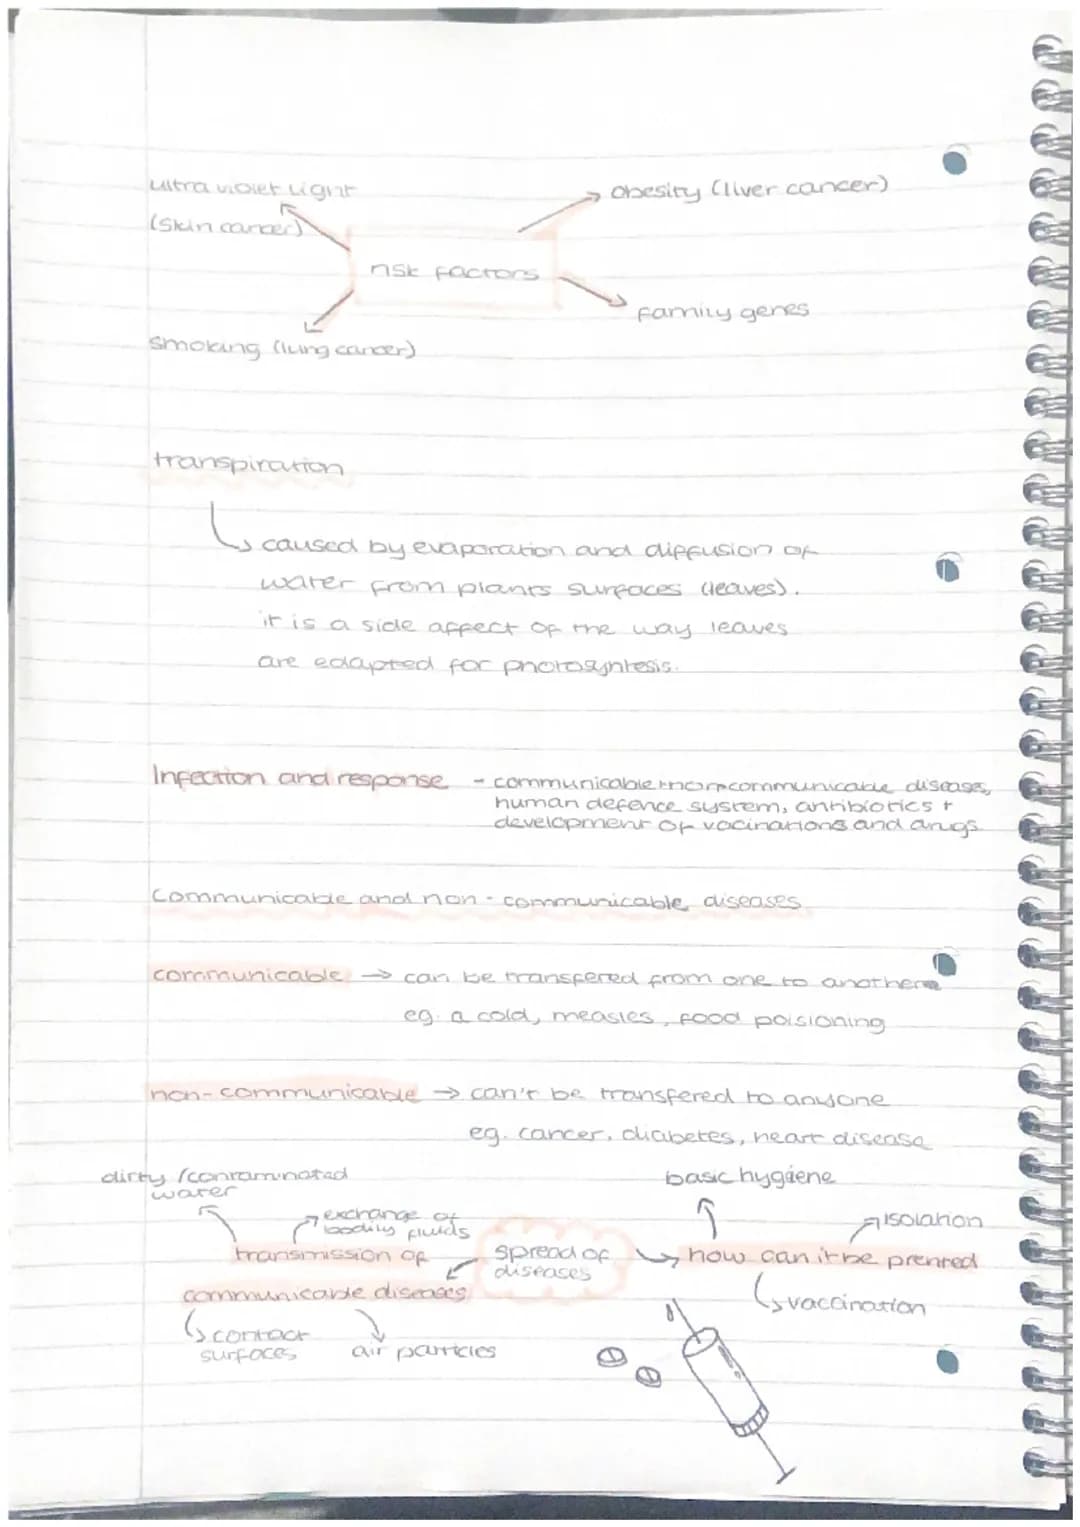 ultra violet light
(skin cancer)
obesity (liver cancer)
risk factors
family genes
smoking (lung cancer)
transpiration
caused by evaporation and diffusion of
water from plants surfaces (leaves).
it is a side affect of the way leaves
are edapted for photosyntesis.
Infection and response - communicable + noncommunicable diseases,
human defence system, antibiotics +
development of vacinations and drugs
communicable and non - communicable diseases
communicable → can be transfered from one to another
eg. a cold, measles, food poisioning
non-communicable → can't be transfered to anyone
eg. cancer, diabetes, heart disease
dirty /contaminated
water
exchange of
bodily fluids
transmission of
communicable diseases
contact
surfaces
air particles
spread of
diseases
basic hygiene
isolation
how can it be prenred
vaccination